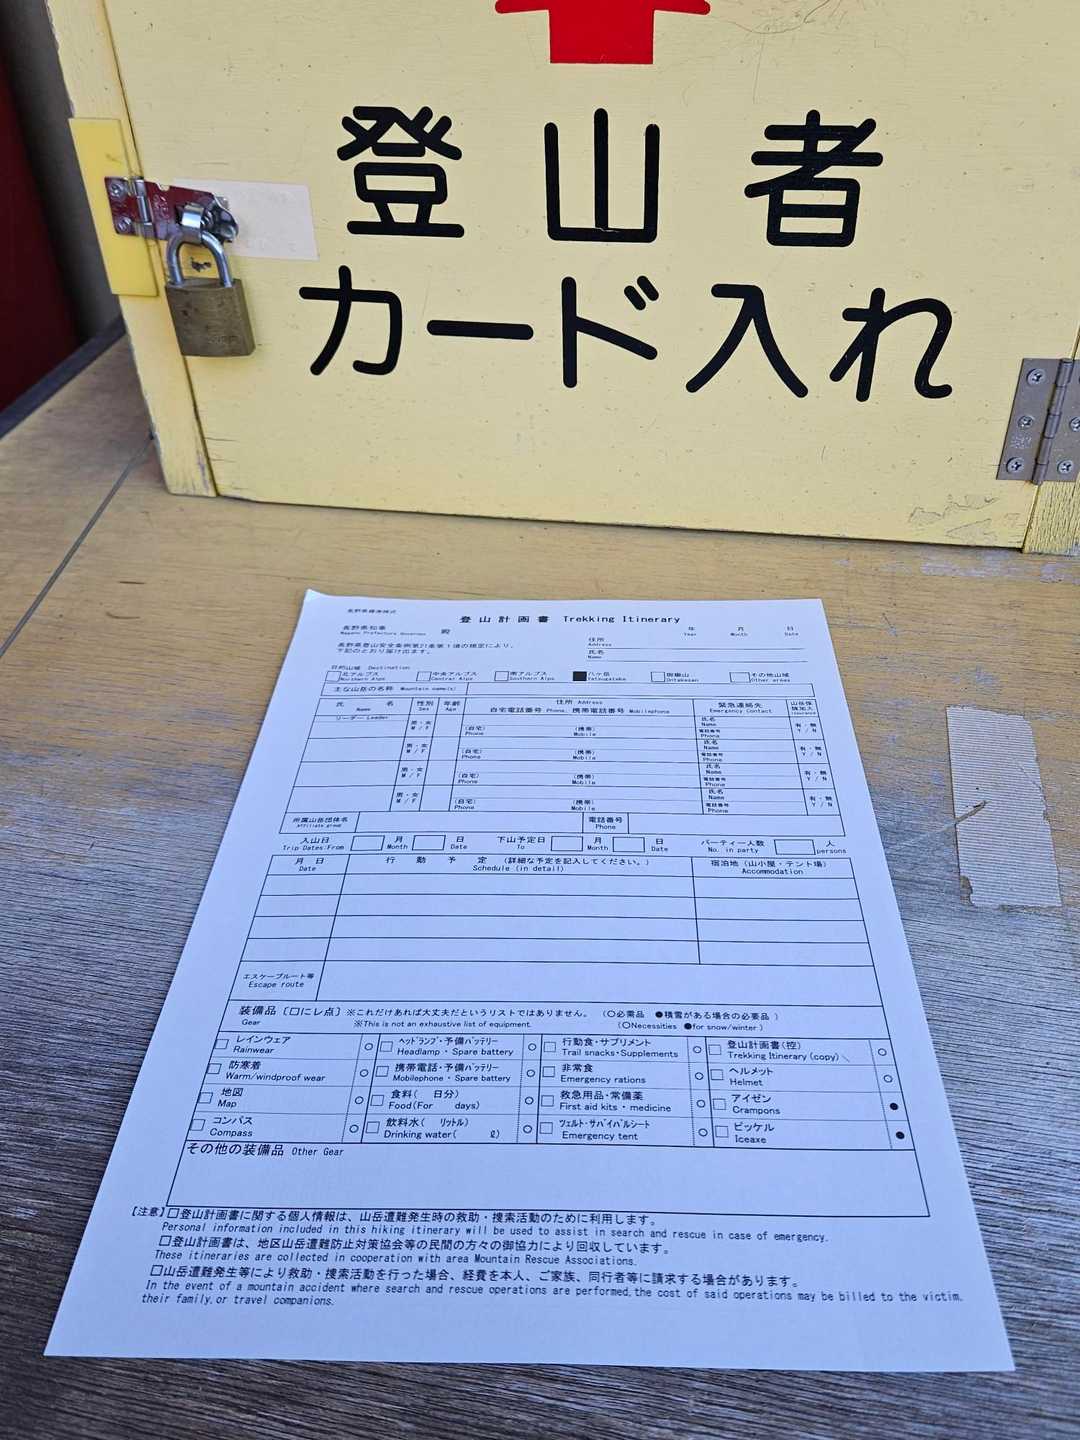 登山者
カード入れ
長野県標準様式
登山計画書 Trekking Itinerary
長野県知事 殿
Nagano Prefecture Governor
年 月 日
Year Month Date
長野県登山安全条例第21条第1項の規定により、
下記のとおり届け出ます。
住所
Address
氏名
Name
目的山域 Destination
北アルプス 中央アルプス 南アルプス 八ヶ岳 御嶽山 その他山域
Northern Alps Central Alps Southern Alps Yatsugatake Ontakesan Other areas
主な山岳の名称 Mountain name(s)
氏 名 性別 年齢 住所 Address 緊急連絡先 山岳保険加入
Name Sex Age 自宅電話番号 Phone, 携帯電話番号 Mobilephone Emergency Contact Insurance
リーダー Leader
男・女 M / F (自宅) Phone (携帯) Mobile 氏名 Name 電話番号 Phone 有・無 Y / N
男・女 M / F (自宅) Phone (携帯) Mobile 氏名 Name 電話番号 Phone 有・無 Y / N
男・女 M / F (自宅) Phone (携帯) Mobile 氏名 Name 電話番号 Phone 有・無 Y / N
男・女 M / F (自宅) Phone (携帯) Mobile 氏名 Name 電話番号 Phone 有・無 Y / N
所属山岳団体名 電話番号
Affiliate group Phone
入山日 月 日 下山予定日 月 日 パーティー人数 人
Trip Dates:From Month Date To Month Date No. in party persons
月 日 行 動 予 定 (詳細な予定を記入してください。) 宿泊地 (山小屋・テント場)
Date Schedule (in detail) Accommodation
エスケープルート等
Escape route
装備品 [□にレ点] ※これだけあれば大丈夫だというリストではありません。 (○必需品 ●積雪がある場合の必要品 )
Gear ※This is not an exhaustive list of equipment. (○Necessities ●for snow/winter )
□ レインウェア ○ □ ヘッドランプ・予備バッテリー ○ □ 行動食・サプリメント ○ □ 登山計画書(控) ○
Rainwear Headlamp・Spare battery Trail snacks・Supplements Trekking Itinerary (copy)
□ 防寒着 ○ □ 携帯電話・予備バッテリー ○ □ 非常食 ○ □ ヘルメット ○
Warm/windproof wear Mobilephone・Spare battery Emergency rations Helmet
□ 地図 ○ □ 食料( 日分) ○ □ 救急用品・常備薬 ○ □ アイゼン ●
Map Food(For days) First aid kits・medicine Crampons
□ コンパス ○ □ 飲料水( リットル) ○ □ ツェルト・サバイバルシート ○ □ ピッケル ●
Compass Drinking water( ℓ) Emergency tent Iceaxe
その他の装備品 Other Gear
【注意】□登山計画書に関する個人情報は、山岳遭難発生時の救助・捜索活動のために利用します。
Personal information included in this hiking itinerary will be used to assist in search and rescue in case of emergency.
□登山計画書は、地区山岳遭難防止対策協会等の民間の方々の御協力により回収しています。
These itineraries are collected in cooperation with area Mountain Rescue Associations.
□山岳遭難発生等により救助・捜索活動を行った場合、経費を本人、ご家族、同行者等に請求する場合があります。
In the event of a mountain accident where search and rescue operations are performed,the cost of said operations may be billed to the victim,
their family,or travel companions.